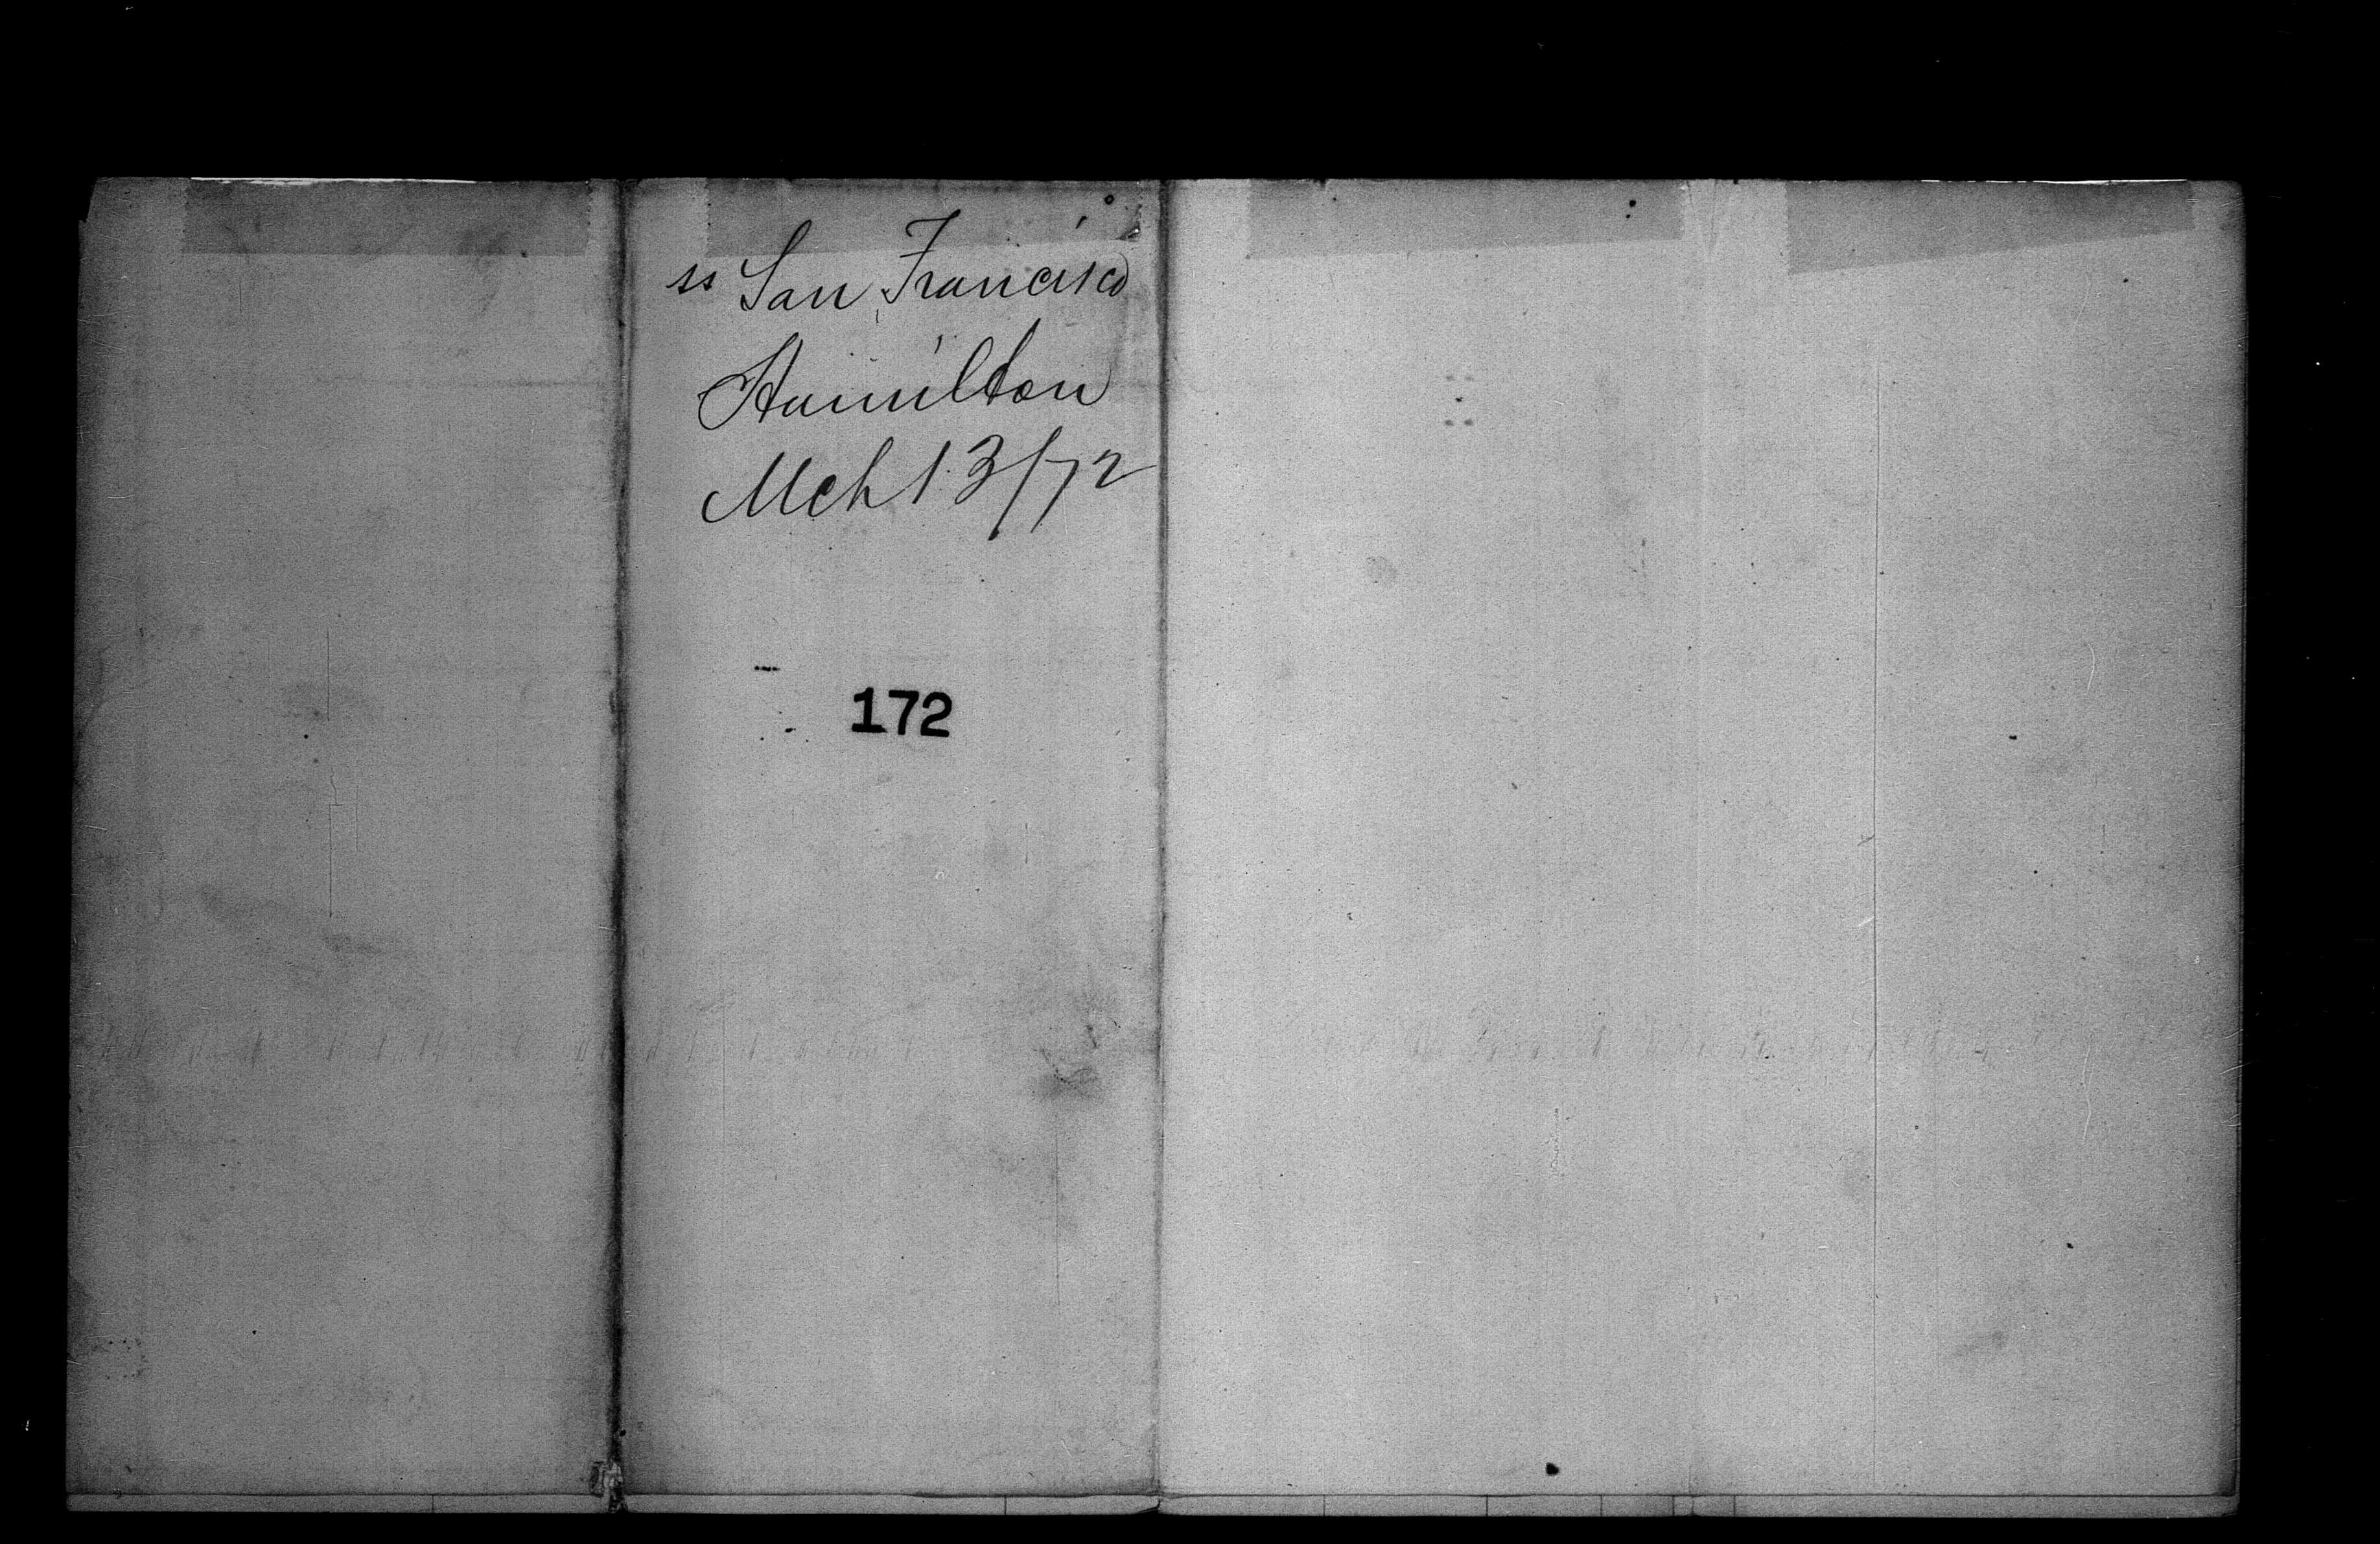 ss San Francisco
Hamilton
Mch 13/72
172